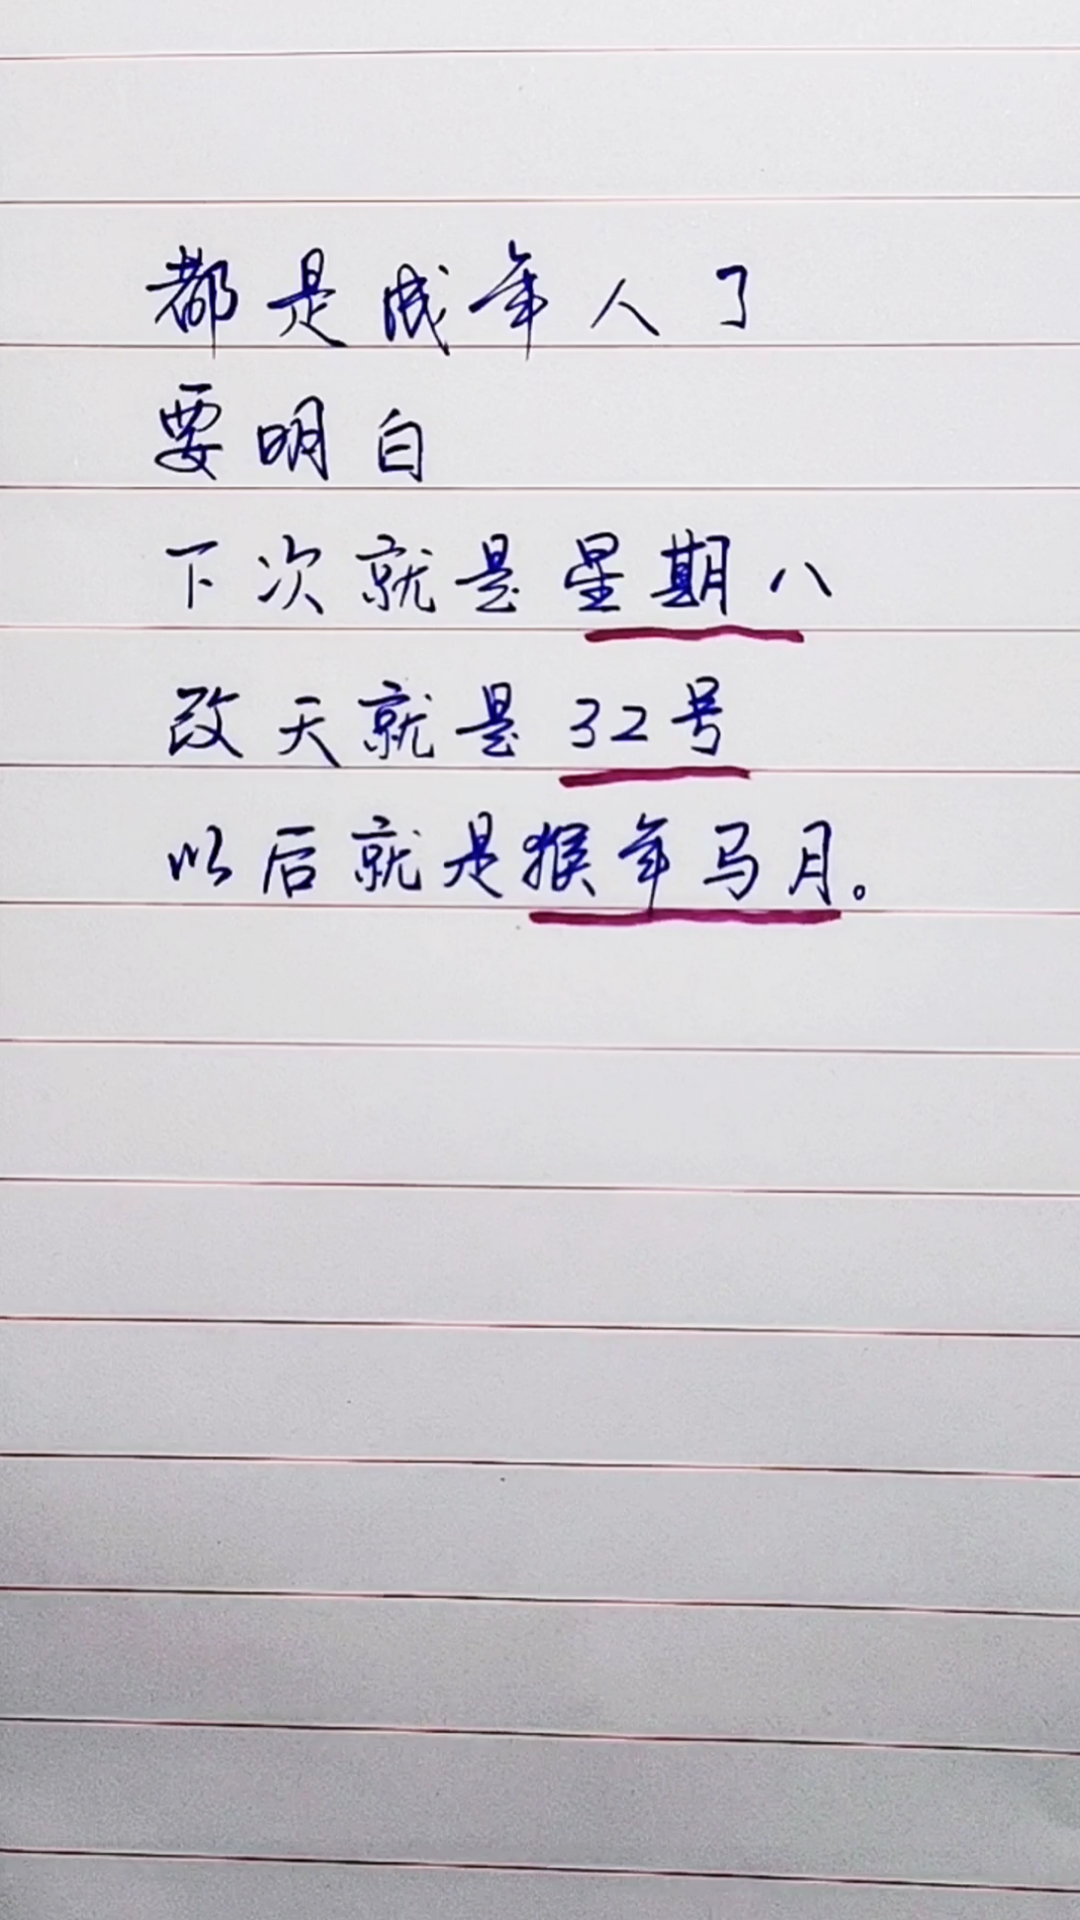 都是成年人了
要明白
下次就是星期八
改天就是32号
以后就是猴年马月。